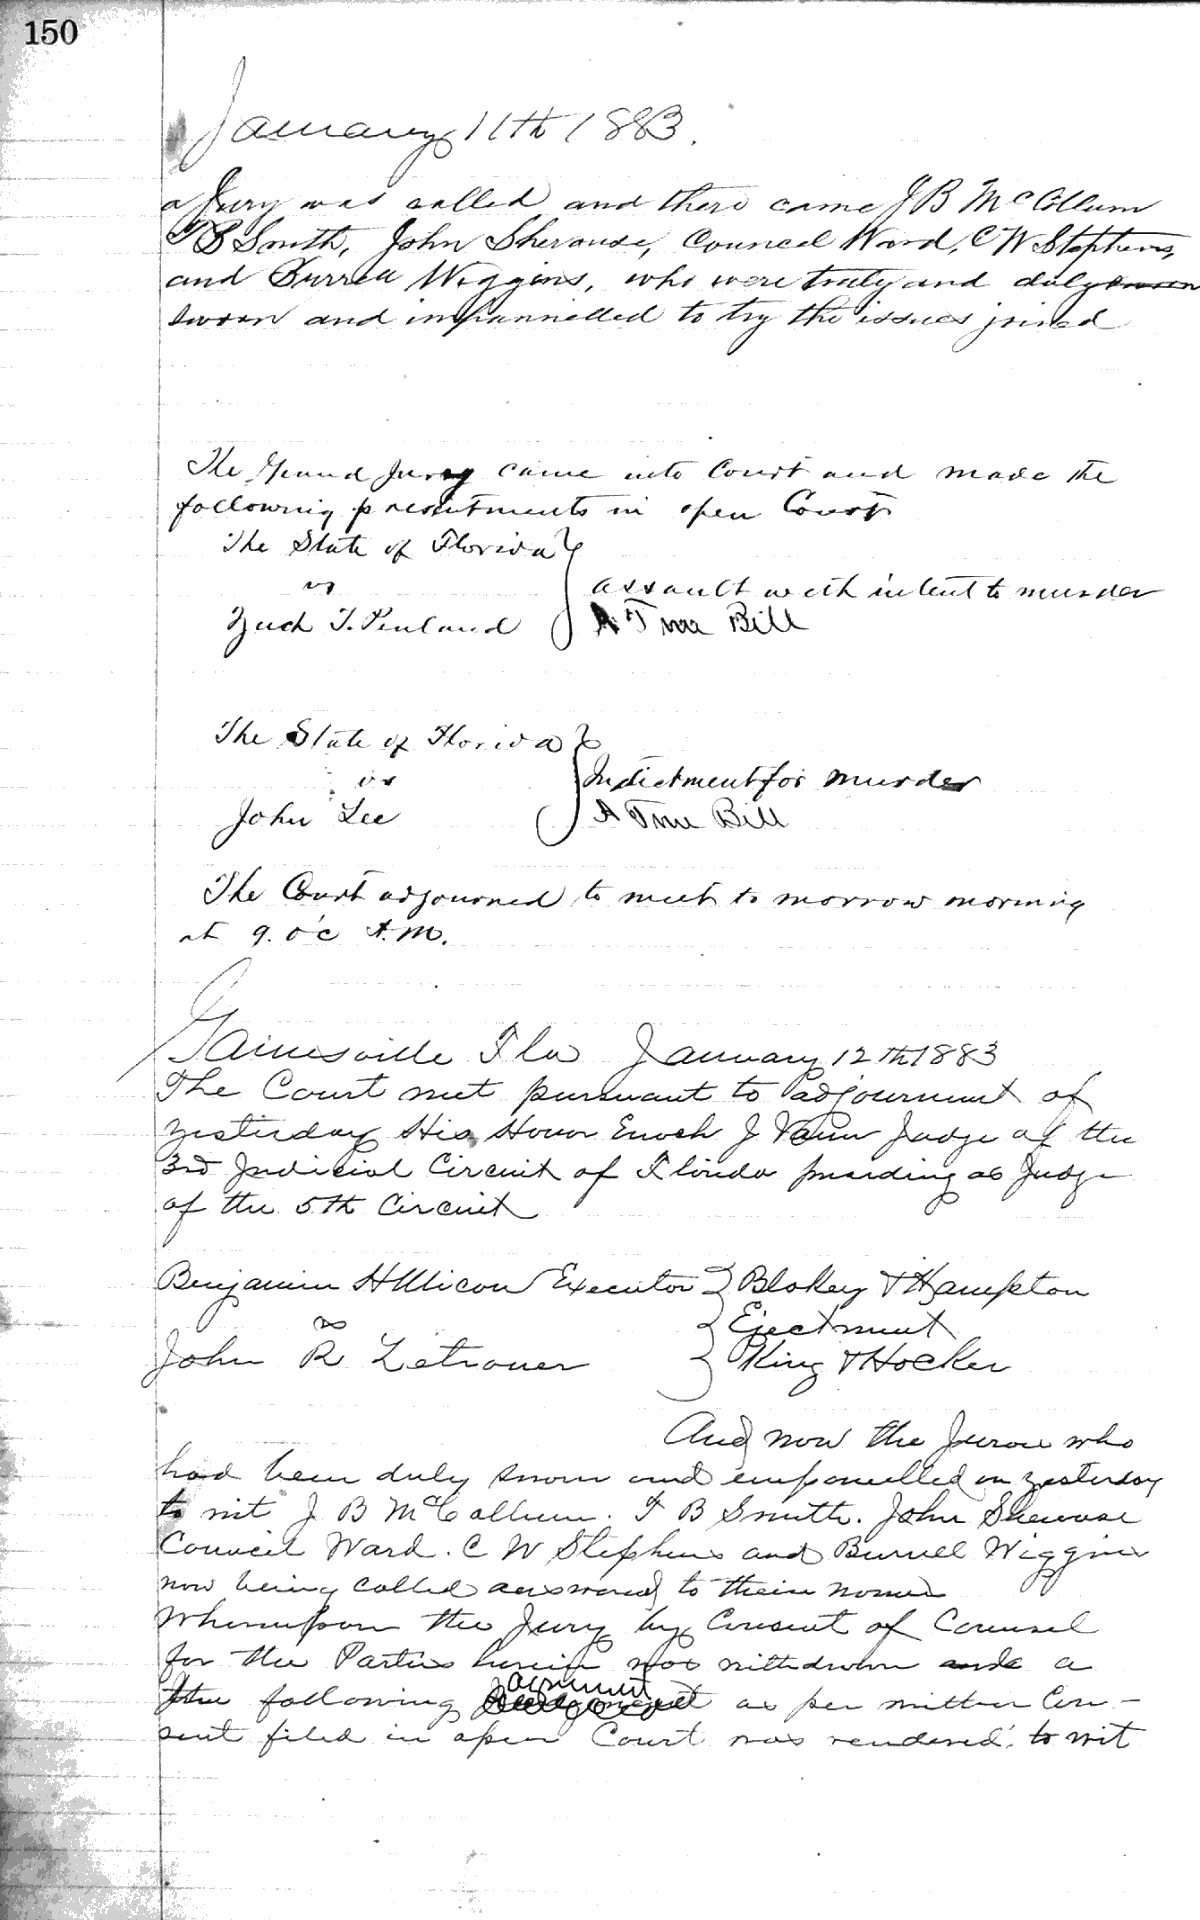 150
January 11th 1883.
a Jury was called and there came J B McCollum
T B Smith, John Sherouse, Council Ward, C W Stephens,
and Burrell Wiggins, who were truly and duly sworn
sworn and impannelled to try the issues joined
The Grand Jury came into Court and made the
following presentments in open Court
The State of Florida
vs
assault with intent to murder
Zach T. Penland
A True Bill
The State of Florida
vs
Indictment for murder
John Lee
A True Bill
The Court adjourned to meet to morrow morning
at 9. o'c A.M.
Gainesville Fla January 12th 1883
The Court met pursuant to adjournment of
yesterday His Honor Enoch J Vann Judge of the
3rd Judicial Circuit of Florida presiding as Judge
of the 5th Circuit
Benjamin H Micou Executor Blakey & Hampton
vs
Ejectment
John R Letrouer King & Hocker
And now the Jurors who
had been duly sworn and empanelled on yesterday
to wit J B McCallum. T B Smith. John Sherouse
Council Ward. C W Stephens and Burrell Wiggins
now being called answered to their names
Whereupon the Jury by Consent of Counsel
for the Parties herein was withdrawn and a
the following agreement as per written Con-
sent filed in open Court was rendered to wit